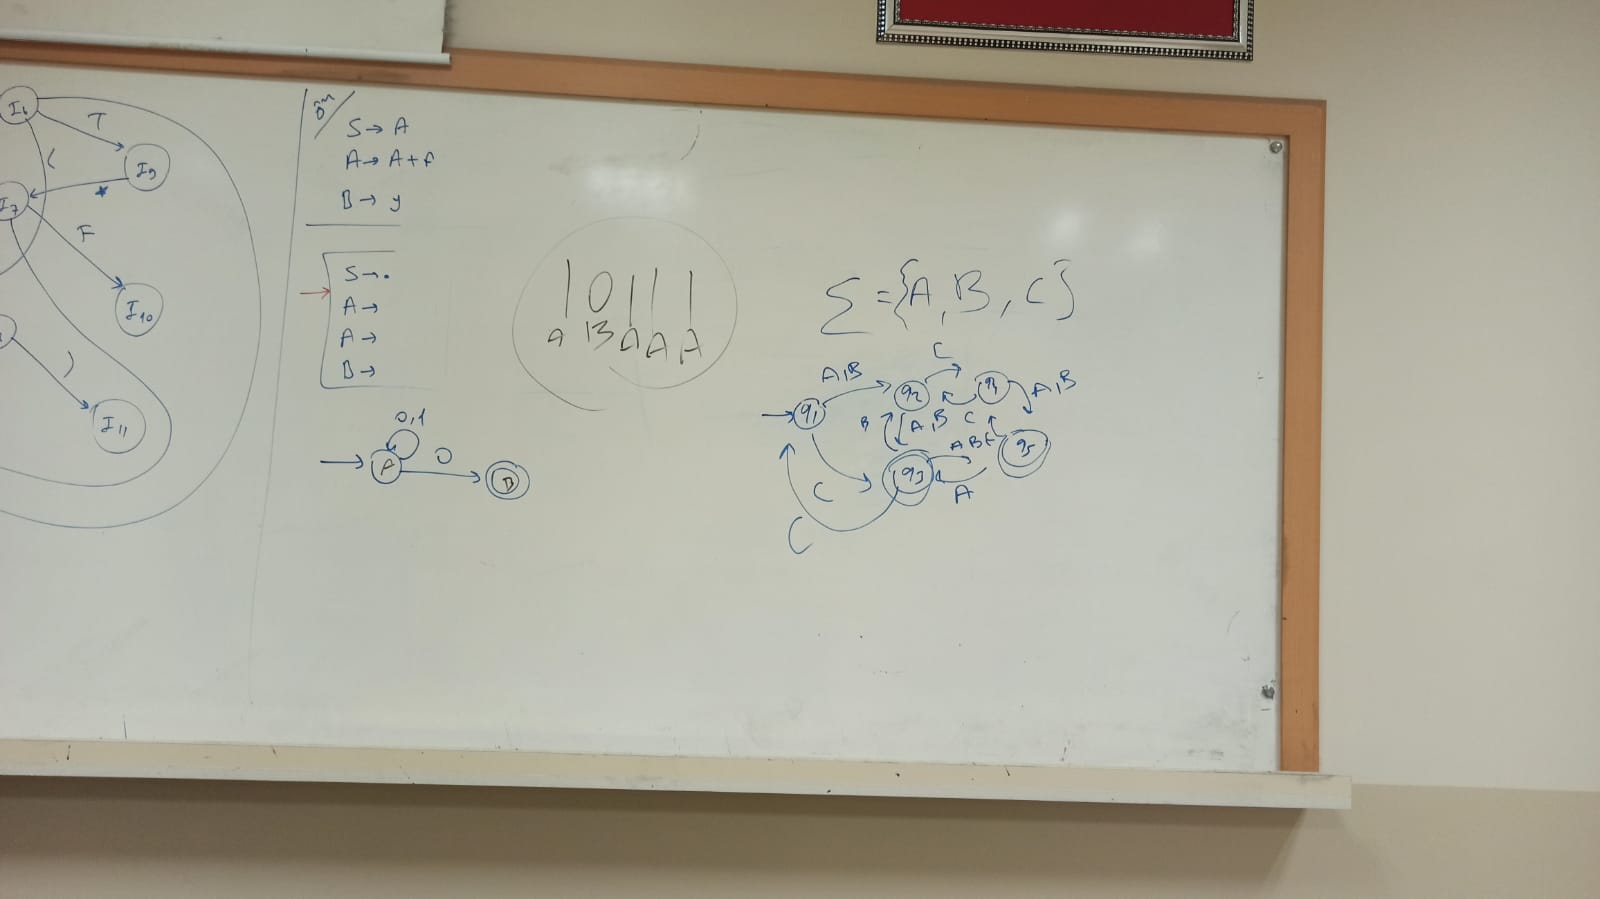 I6
T
(
I9
*
I7
F
I10
)
I11
ön
S→A
A→A+A
B→y
S→.
A→
A→
B→
0,1
A
0
B
10111
A B A A A
Σ={A,B,C}
A,B
C
q1
q2
A,B
B
A,B
C
ABC
q3
q5
C
A
C